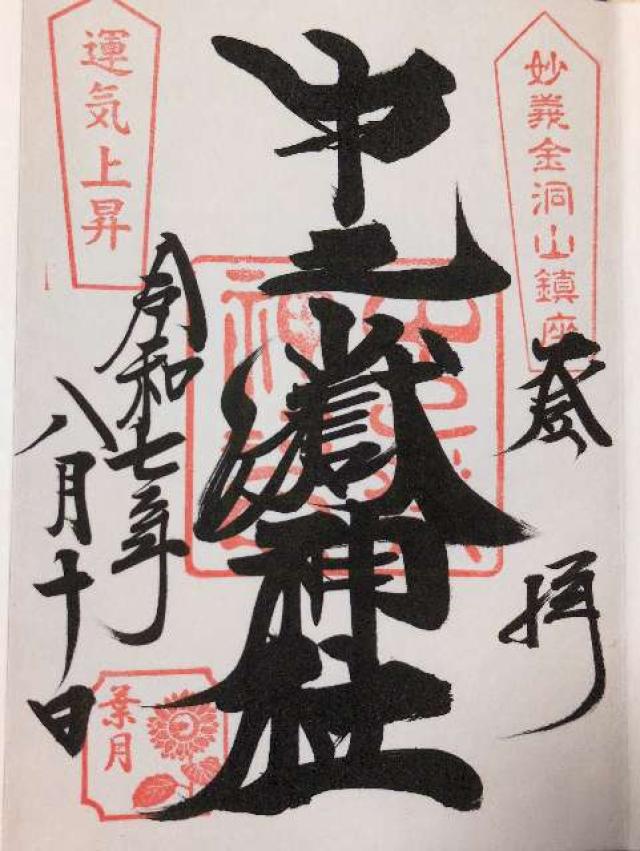 妙義金洞山鎮座
参拝
中之嶽神社
運気上昇
令和七年
八月十日
葉月